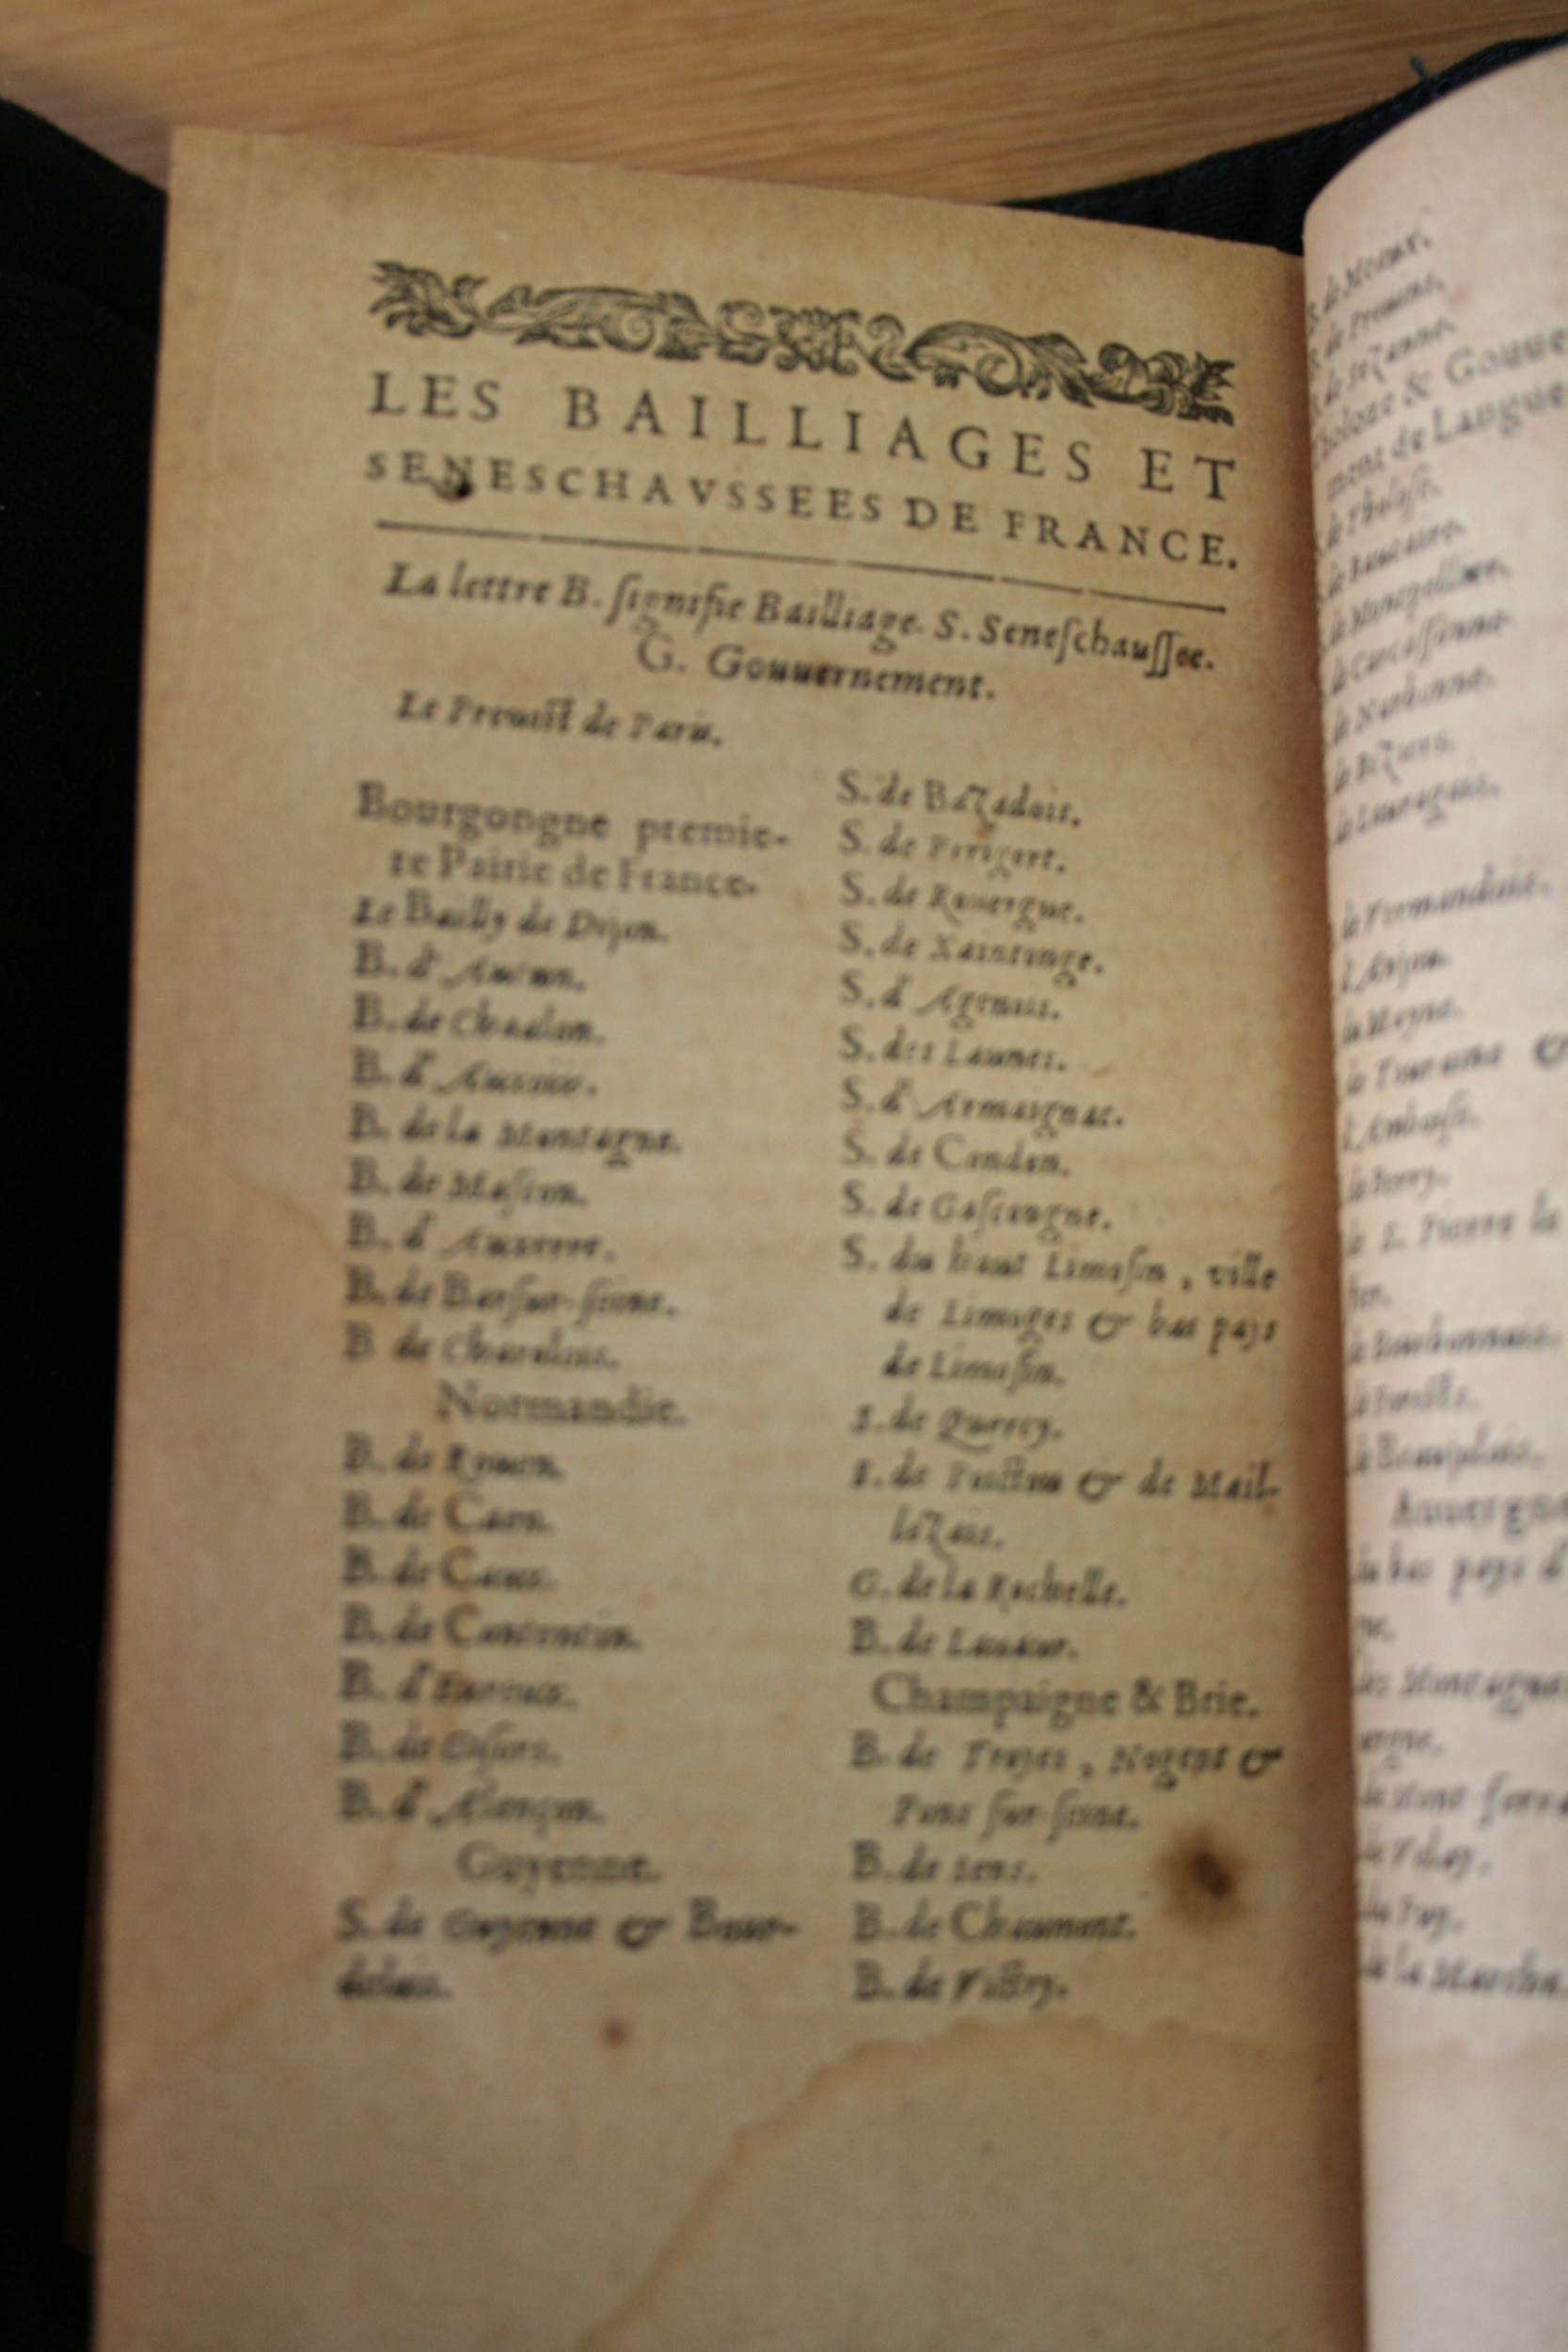 LES BAILLIAGES ET
SENESCHAVSSEES DE FRANCE.
La lettre B. ſignifie Bailliage. S. Seneſchauſſee.
G. Gouuernement.
Le Preuoſt de Paris.
Bourgongne premie-
re Pairie de France.
Le Bailly de Dijon.
B. d'
B. de Chaalon.
B. d'
B. de la Montagne.
B. de Maſcon.
B. d' Auxerre.
B. de Bar ſur-ſeine.
B de Charolois.
Normandie.
B. de Rouen.
B. de Caen.
B. de Caux.
B. de Constentin.
B. d'Eureux.
B. de Giſors.
B. d' Alençon.
Guyenne.
S. de Guyenne & Bour-
delois.
S. de Bazadois.
S. de Perigort.
S. de Rouergue.
S. de Xaintonge.
S. d' Agenois.
S. des Launes.
S. d' Armaignac.
S. de Condon.
S. de Gaſcongne.
S. du haut Limoſin, ville
de Limoges & bas pays
de Limoſin.
S. de Quercy.
S. de Poictou & de Mail-
lezais.
G. de la Rochelle.
B. de
Champaigne & Brie.
B. de Troyes, Nogent &
Pont ſur-ſeine.
B. de Sens.
B. de Chaumont.
B. de Victry.
de Meaux.
de Prouins.
de Sezanne.
& Gouuer
ment de Langue
de Tholoſe.
de Beaucaire.
de Montpellier.
de Carcaſſonne.
de Narbonne.
de Beziers.
de Lauragais.
de Vermandois.
d'Anjou.
du Mayne.
de Touraine &
d'Amboiſe.
de Berry.
de S. Pierre le
de Bourbonnois.
de Beaujolois.
Auuergne
bas pays d'
Montagnes
de Velay.
du Puy.
de la Marche.